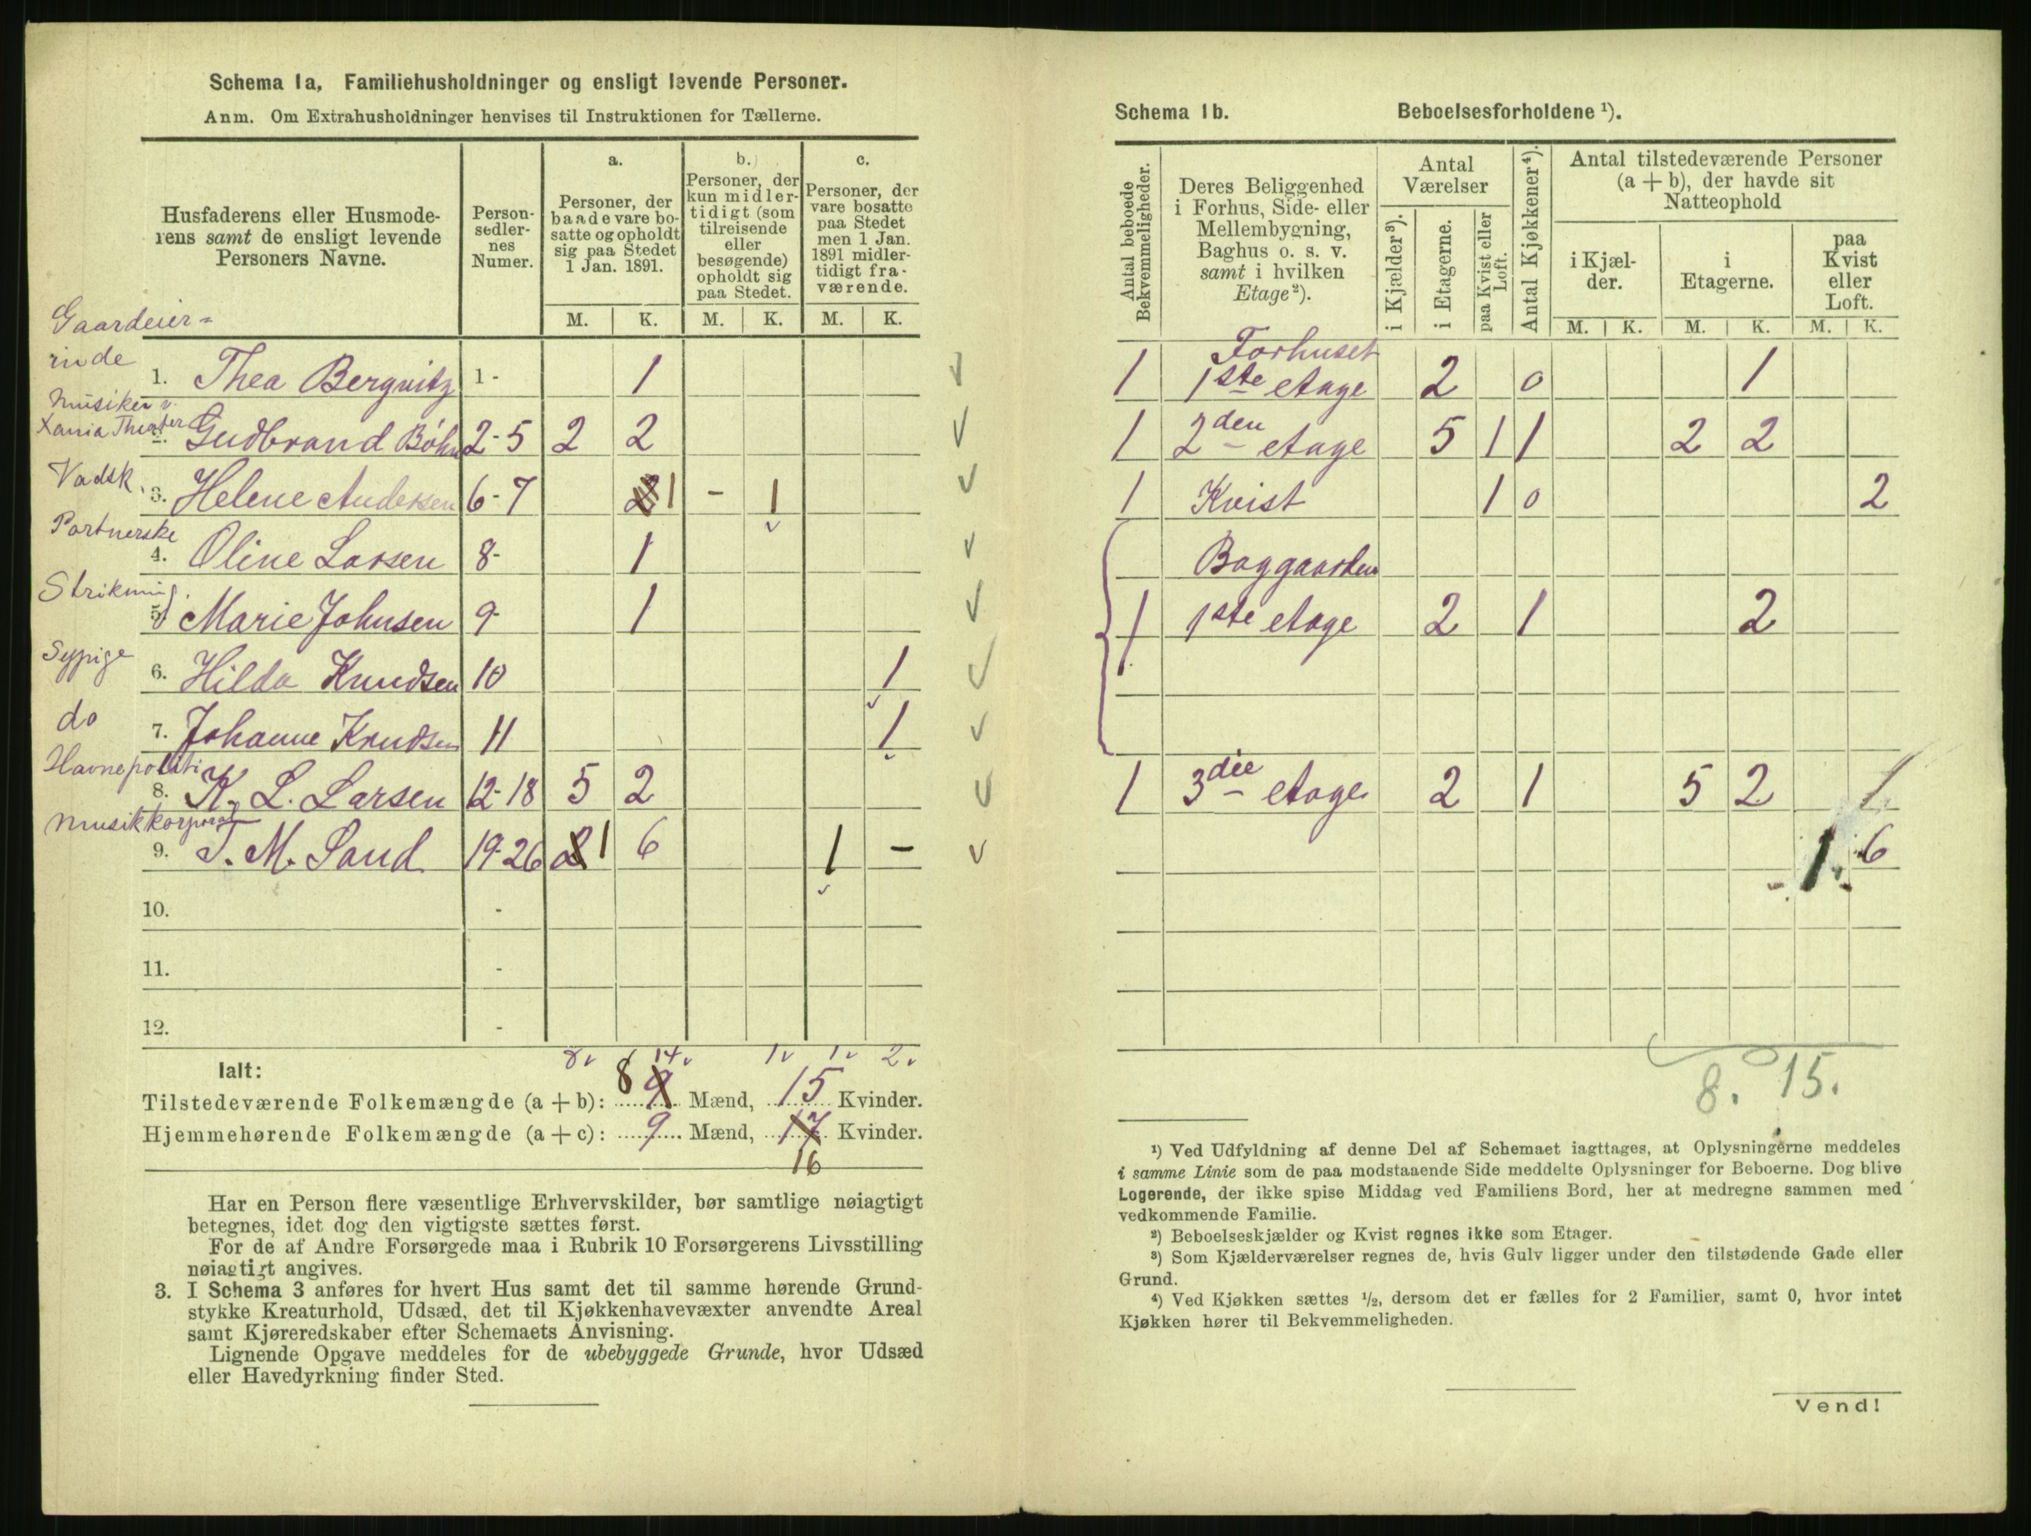 Schema 1a, Familiehusholdninger og ensligt levende Personer.
Anm. Om Extrahusholdninger henvises til Instruktionen for Tællerne.
Husfaderens eller Husmoderens samt de ensligt levende Personers Navne.
Personsedlernes Numer.
a. Personer, der baade vare bosatte og opholdt sig paa Stedet 1 Jan. 1891.
b. Personer, der kun midlertidigt (som tilreisende eller besøgende) opholdt sig paa Stedet.
c. Personer, der vare bosatte paa Stedet men 1 Jan. 1891 midlertidigt fraværende.
M. K. M. K. M. K.
Gaardeier-
rinde
1. Thea Bergwitz 1- 1
Musiker v.
Xania Theater
2. Gudbrand Bøhn 2-5 2 2
Vadsk.
3. Helene Andersen 6-7 2 1 - 1
Portnerske
4. Oline Larsen 8- 1
Strikning.
5. Marie Johnsen 9- 1
Sypige
6. Hilda Knudsen 10 1
do
7. Johanne Knudsen 11 1
Havnepoliti
8. K. L. Larsen 12-18 5 2
Musikkorporal
9. J. M. Sand 19-26 2 1 6 1 -
10. -
11. -
12. -
8 14 1 1 2
Ialt:
Tilstedeværende Folkemængde (a + b): 8 9 Mænd, 15 Kvinder.
Hjemmehørende Folkemængde (a + c): 9 Mænd, 17 Kvinder.
16
Har en Person flere væsentlige Erhvervskilder, bør samtlige nøiagtigt
betegnes, idet dog den vigtigste sættes først.
For de af Andre Forsørgede maa i Rubrik 10 Forsørgerens Livsstilling
nøiagtigt angives.
3. I Schema 3 anføres for hvert Hus samt det til samme hørende Grund-
stykke Kreaturhold, Udsæd, det til Kjøkkenhavevæxter anvendte Areal
samt Kjøreredskaber efter Schemaets Anvisning.
Lignende Opgave meddeles for de ubebyggede Grunde, hvor Udsæd
eller Havedyrkning finder Sted.
Schema 1b. Beboelsesforholdene ¹).
Antal beboede Bekvemmeligheder.
Deres Beliggenhed i Forhus, Side- eller Mellembygning, Baghus o. s. v. samt i hvilken Etage²).
Antal Værelser
i Kjælder³).
i Etagerne.
paa Kvist eller Loft.
Antal Kjøkkener⁴).
Antal tilstedeværende Personer (a + b), der havde sit Natteophold
i Kjælder.
i Etagerne.
paa Kvist eller Loft.
M. K. M. K. M. K.
Forhuset
1 1ste etage 2 0 1
1 2den etage 5 1 1 2 2
1 Kvist 1 0 2
Baggaarden
1 1ste etage 2 1 2
1 3die etage 2 1 5 2 1
1 6
8. 15.
¹) Ved Udfyldning af denne Del af Schemaet iagttages, at Oplysningerne meddeles
i samme Linie som de paa modstaaende Side meddelte Oplysninger for Beboerne. Dog blive
Logerende, der ikke spise Middag ved Familiens Bord, her at medregne sammen med
vedkommende Familie.
²) Beboelseskjælder og Kvist regnes ikke som Etager.
³) Som Kjælderværelser regnes de, hvis Gulv ligger under den tilstødende Gade eller
Grund.
⁴) Ved Kjøkken sættes ½, dersom det er fælles for 2 Familier, samt 0, hvor intet
Kjøkken hører til Bekvemmeligheden.
Vend!